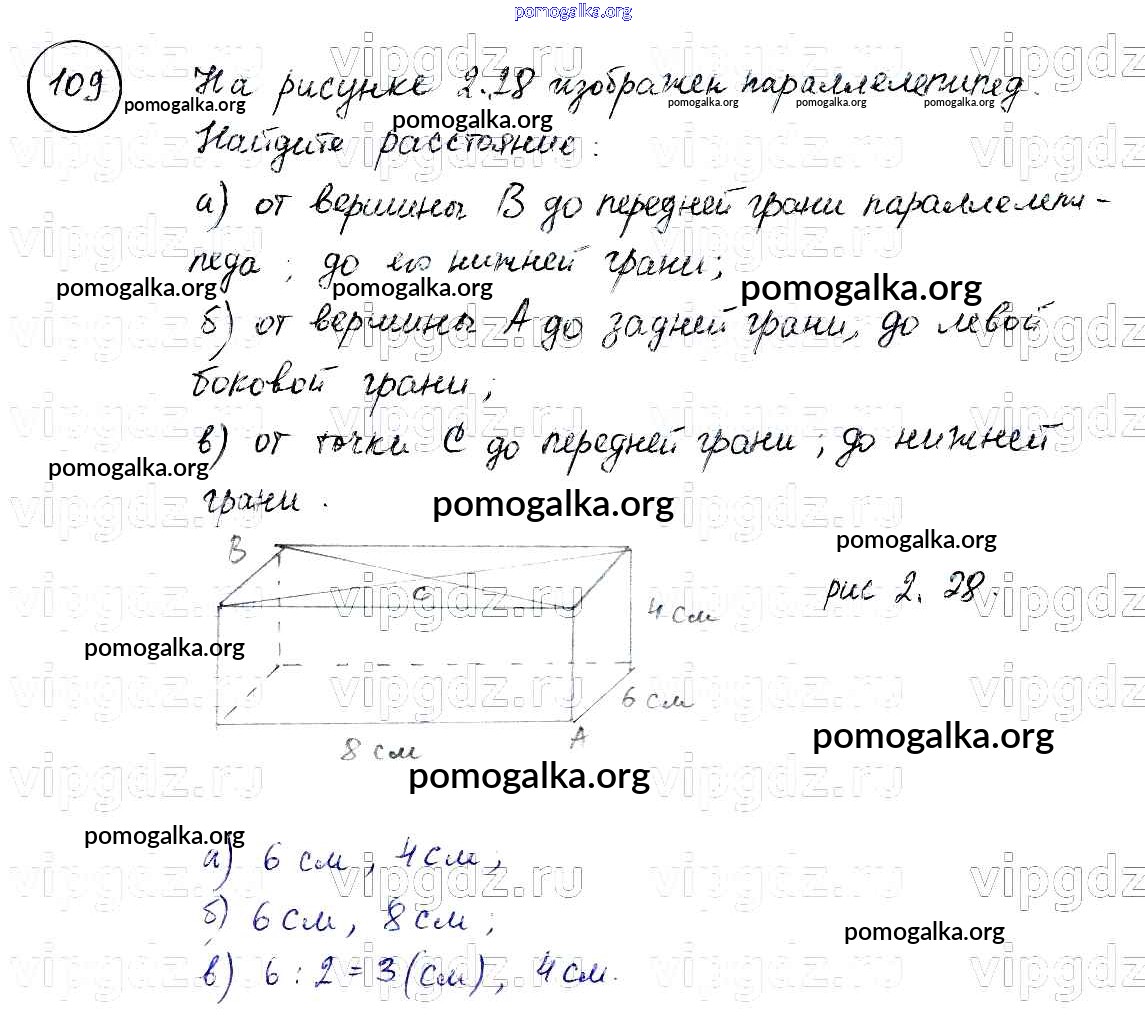 pomogalka.org
109 На рисунке 2.28 изображен параллелепипед.
Найдите расстояние:
а) от вершины В до передней грани параллелепи-
педа; до его нижней грани;
б) от вершины А до задней грани, до левой
боковой грани;
в) от точки С до передней грани; до нижней
грани.
В
С
4 см
рис 2. 28.
6 см
8 см
А
а) 6 см, 4 см;
б) 6 см, 8 см;
в) 6 : 2 = 3 (см), 4 см.
pomogalka.org
vipgdz.ru